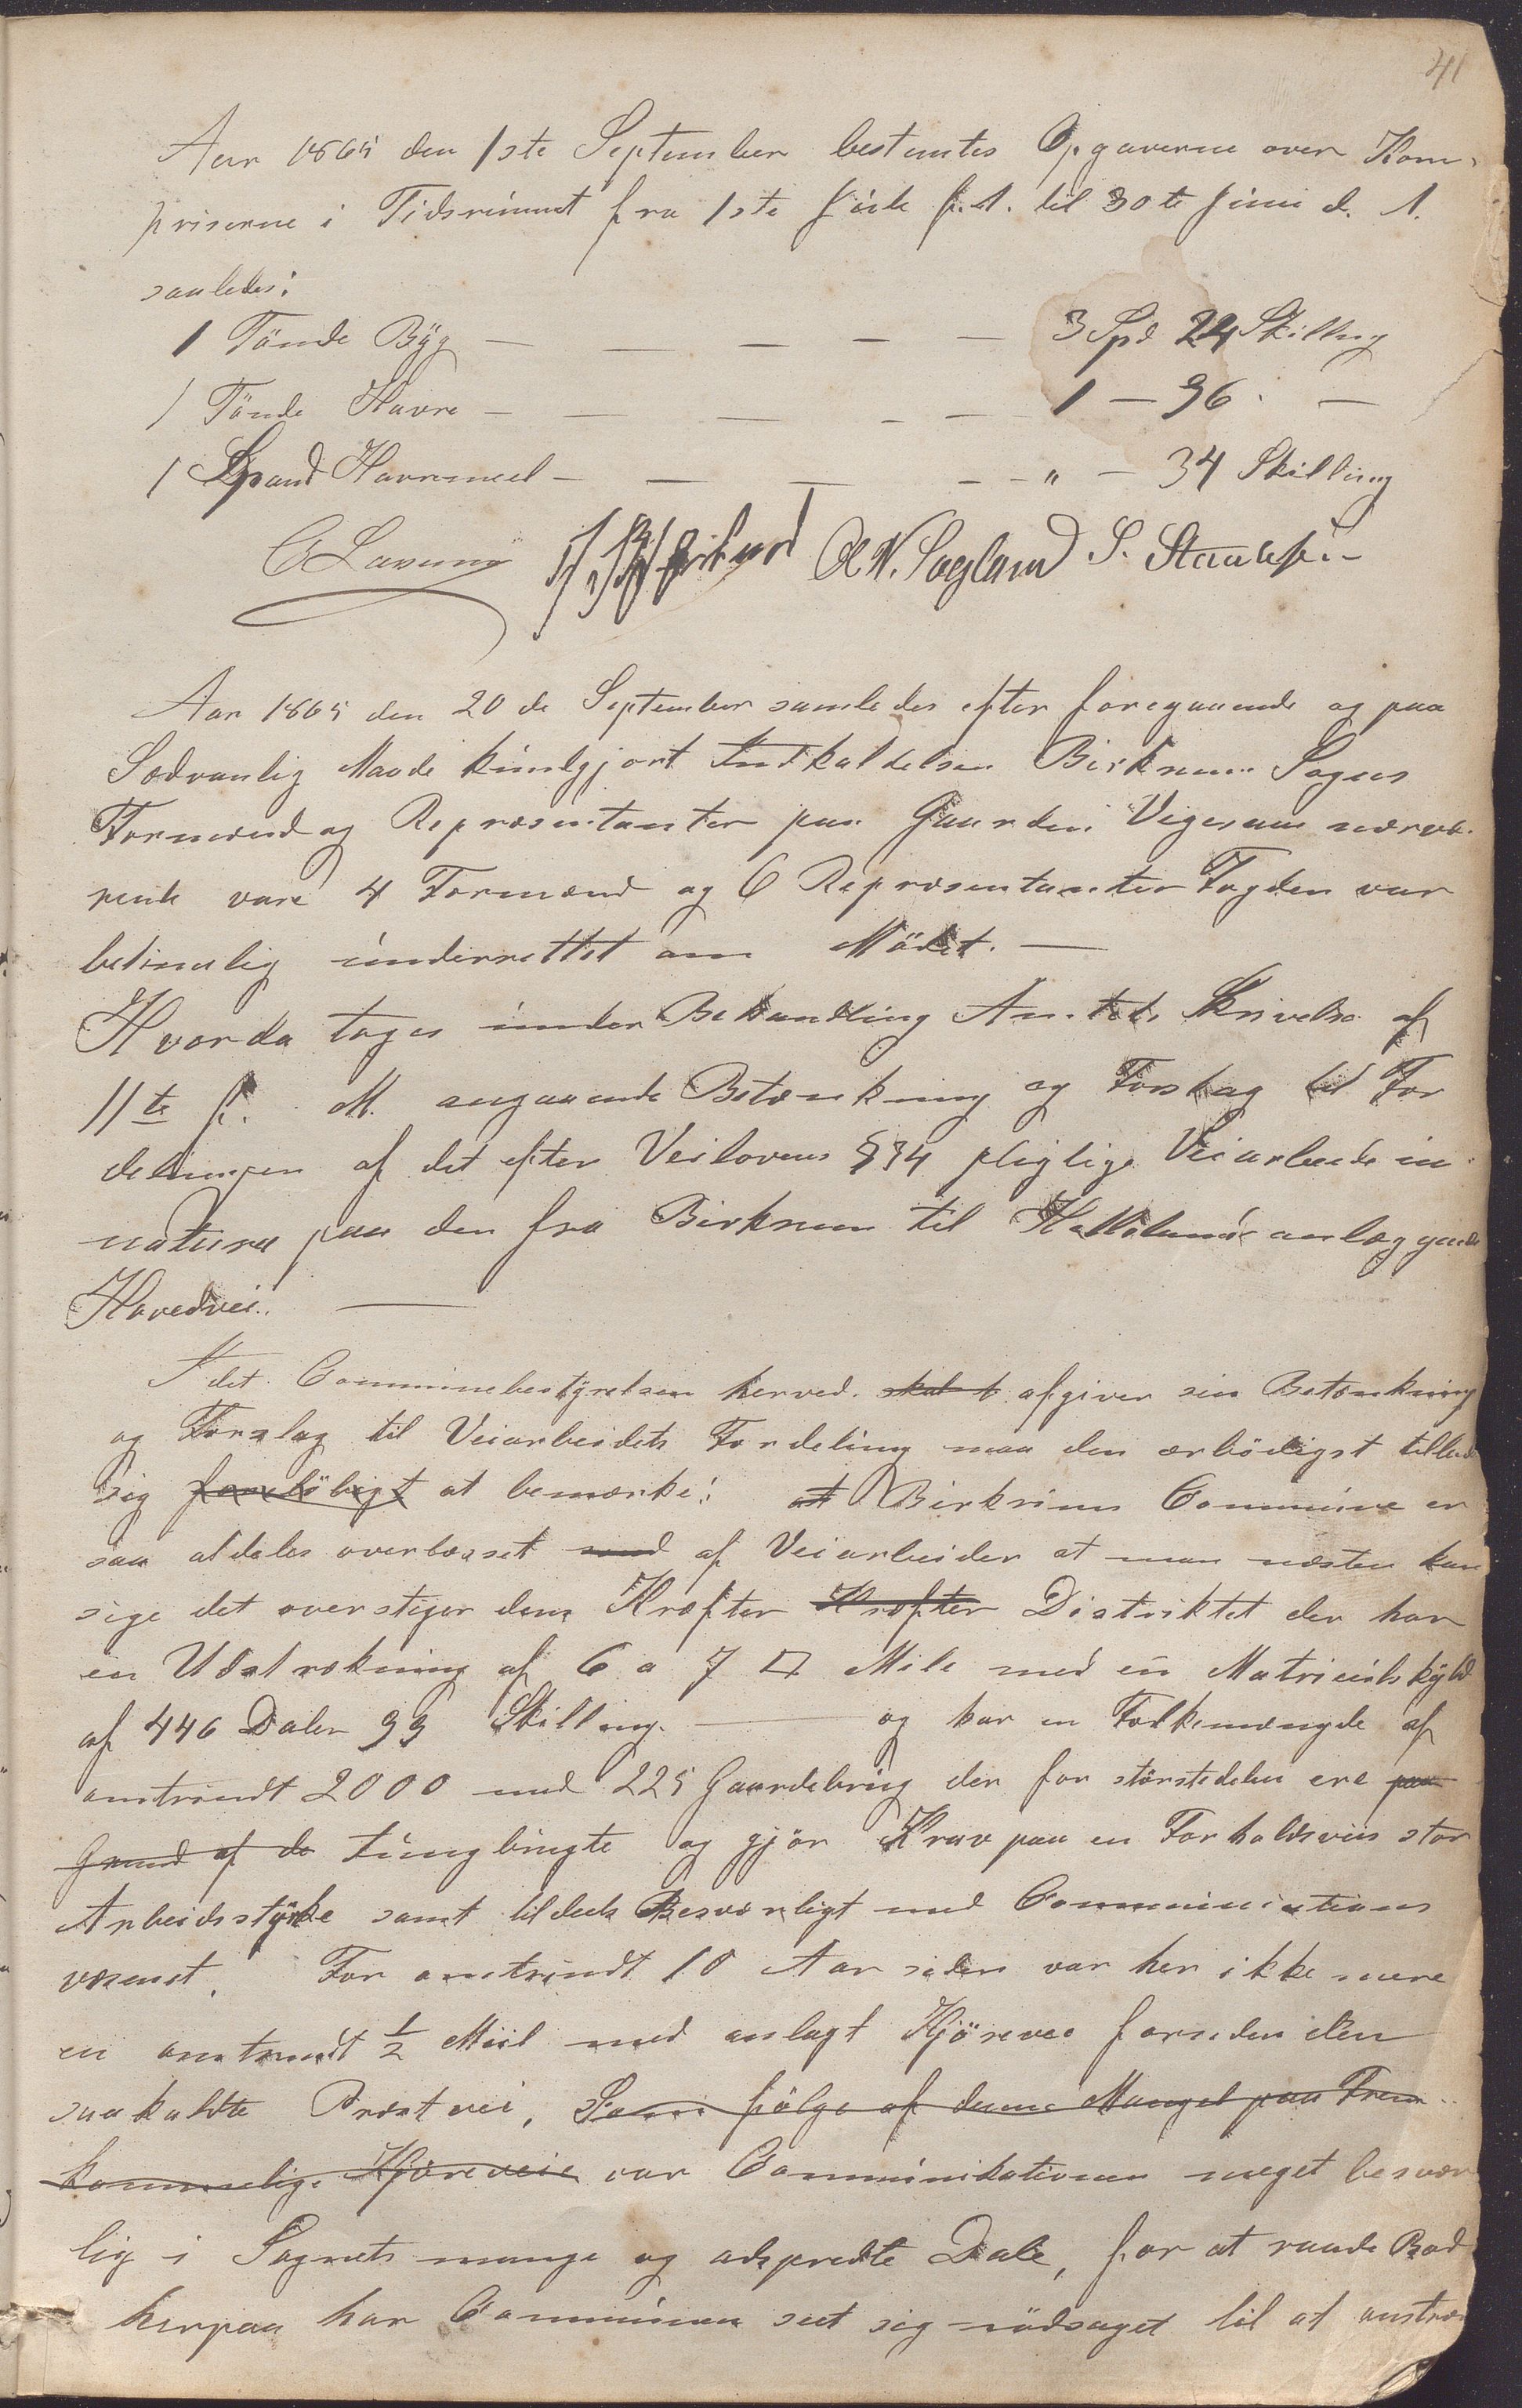 41
Aar 1865 den 1ste September bestemtes Opgaverne over Korn-
priserne i Tidsrummet fra 1ste Juli f. A. til 30te Juni d. A.
saaledes:
1 Tønde Byg — — — — — 3 Spd 24 Skilling
1 Tønde Havre — — — — — 1 — 96 —
1 Spand Havremeel — — — — — " — 34 Skilling
O. N. Sagland S.
Aar 1865 den 20de September samledes efter foregaaende og paa
Sædvanlig Maade kundgjort Indkaldelsen Birkrem Sogns
Formænd og Repræsentanter paa Gaarden Vigesaae nærvæ-
rende vare 4 Formænd og 6 Repræsentanter Fogden var
betimelig underrettet om Mødet. —
Hvorda toges under Behandling Amtets Skrivelse af
11te f. M. angaaende Betænkning og Forslag til For
delingen af det efter Veilovens § 34 pligtige Veiarbeide in
natura paa den fra Birkrem til anlæggende
Hovedvei. —
I det Communebestyrelsen herved skulet afgiver sin Betænkning
og Forslag til Veiarbeidets Fordeling maa den ærbödigst tillade
sig foreløbigt at bemærke: at Birkrims Commune er
saa aldeles overlæsset med af Veiarbeider at man næsten kan
sige det overstiger dens Kræfter Kræfter Distriktet der har
en Udstrækning af 6 a 7 □ Mile med en Matrikulskyld
af 446 Daler 99 Skilling — og har en Folkemængde af
omtrindt 2000 med 225 Gaardebrug der for störstedelen ere paa
Grund af de tungbrugte og gjör Krav paa en Forholdsviis stor
Arbeidsstyrke samt tildeels Besværligt med Communications
væsenet. For omtrindt 10 Aar siden var her ikke mere
en omtrendt ½ Miil med anlagt Kjörevei foruden den
saakaldte Præstvei, Som fölge af denne Mangel paa Frem-
kommelige Kjöreveie var Communikationen meget besvær
lig i Sognets mange og adspredte Dale, for at raade Bod
herpaa har Communen seet sig nödsaget til at anstræn